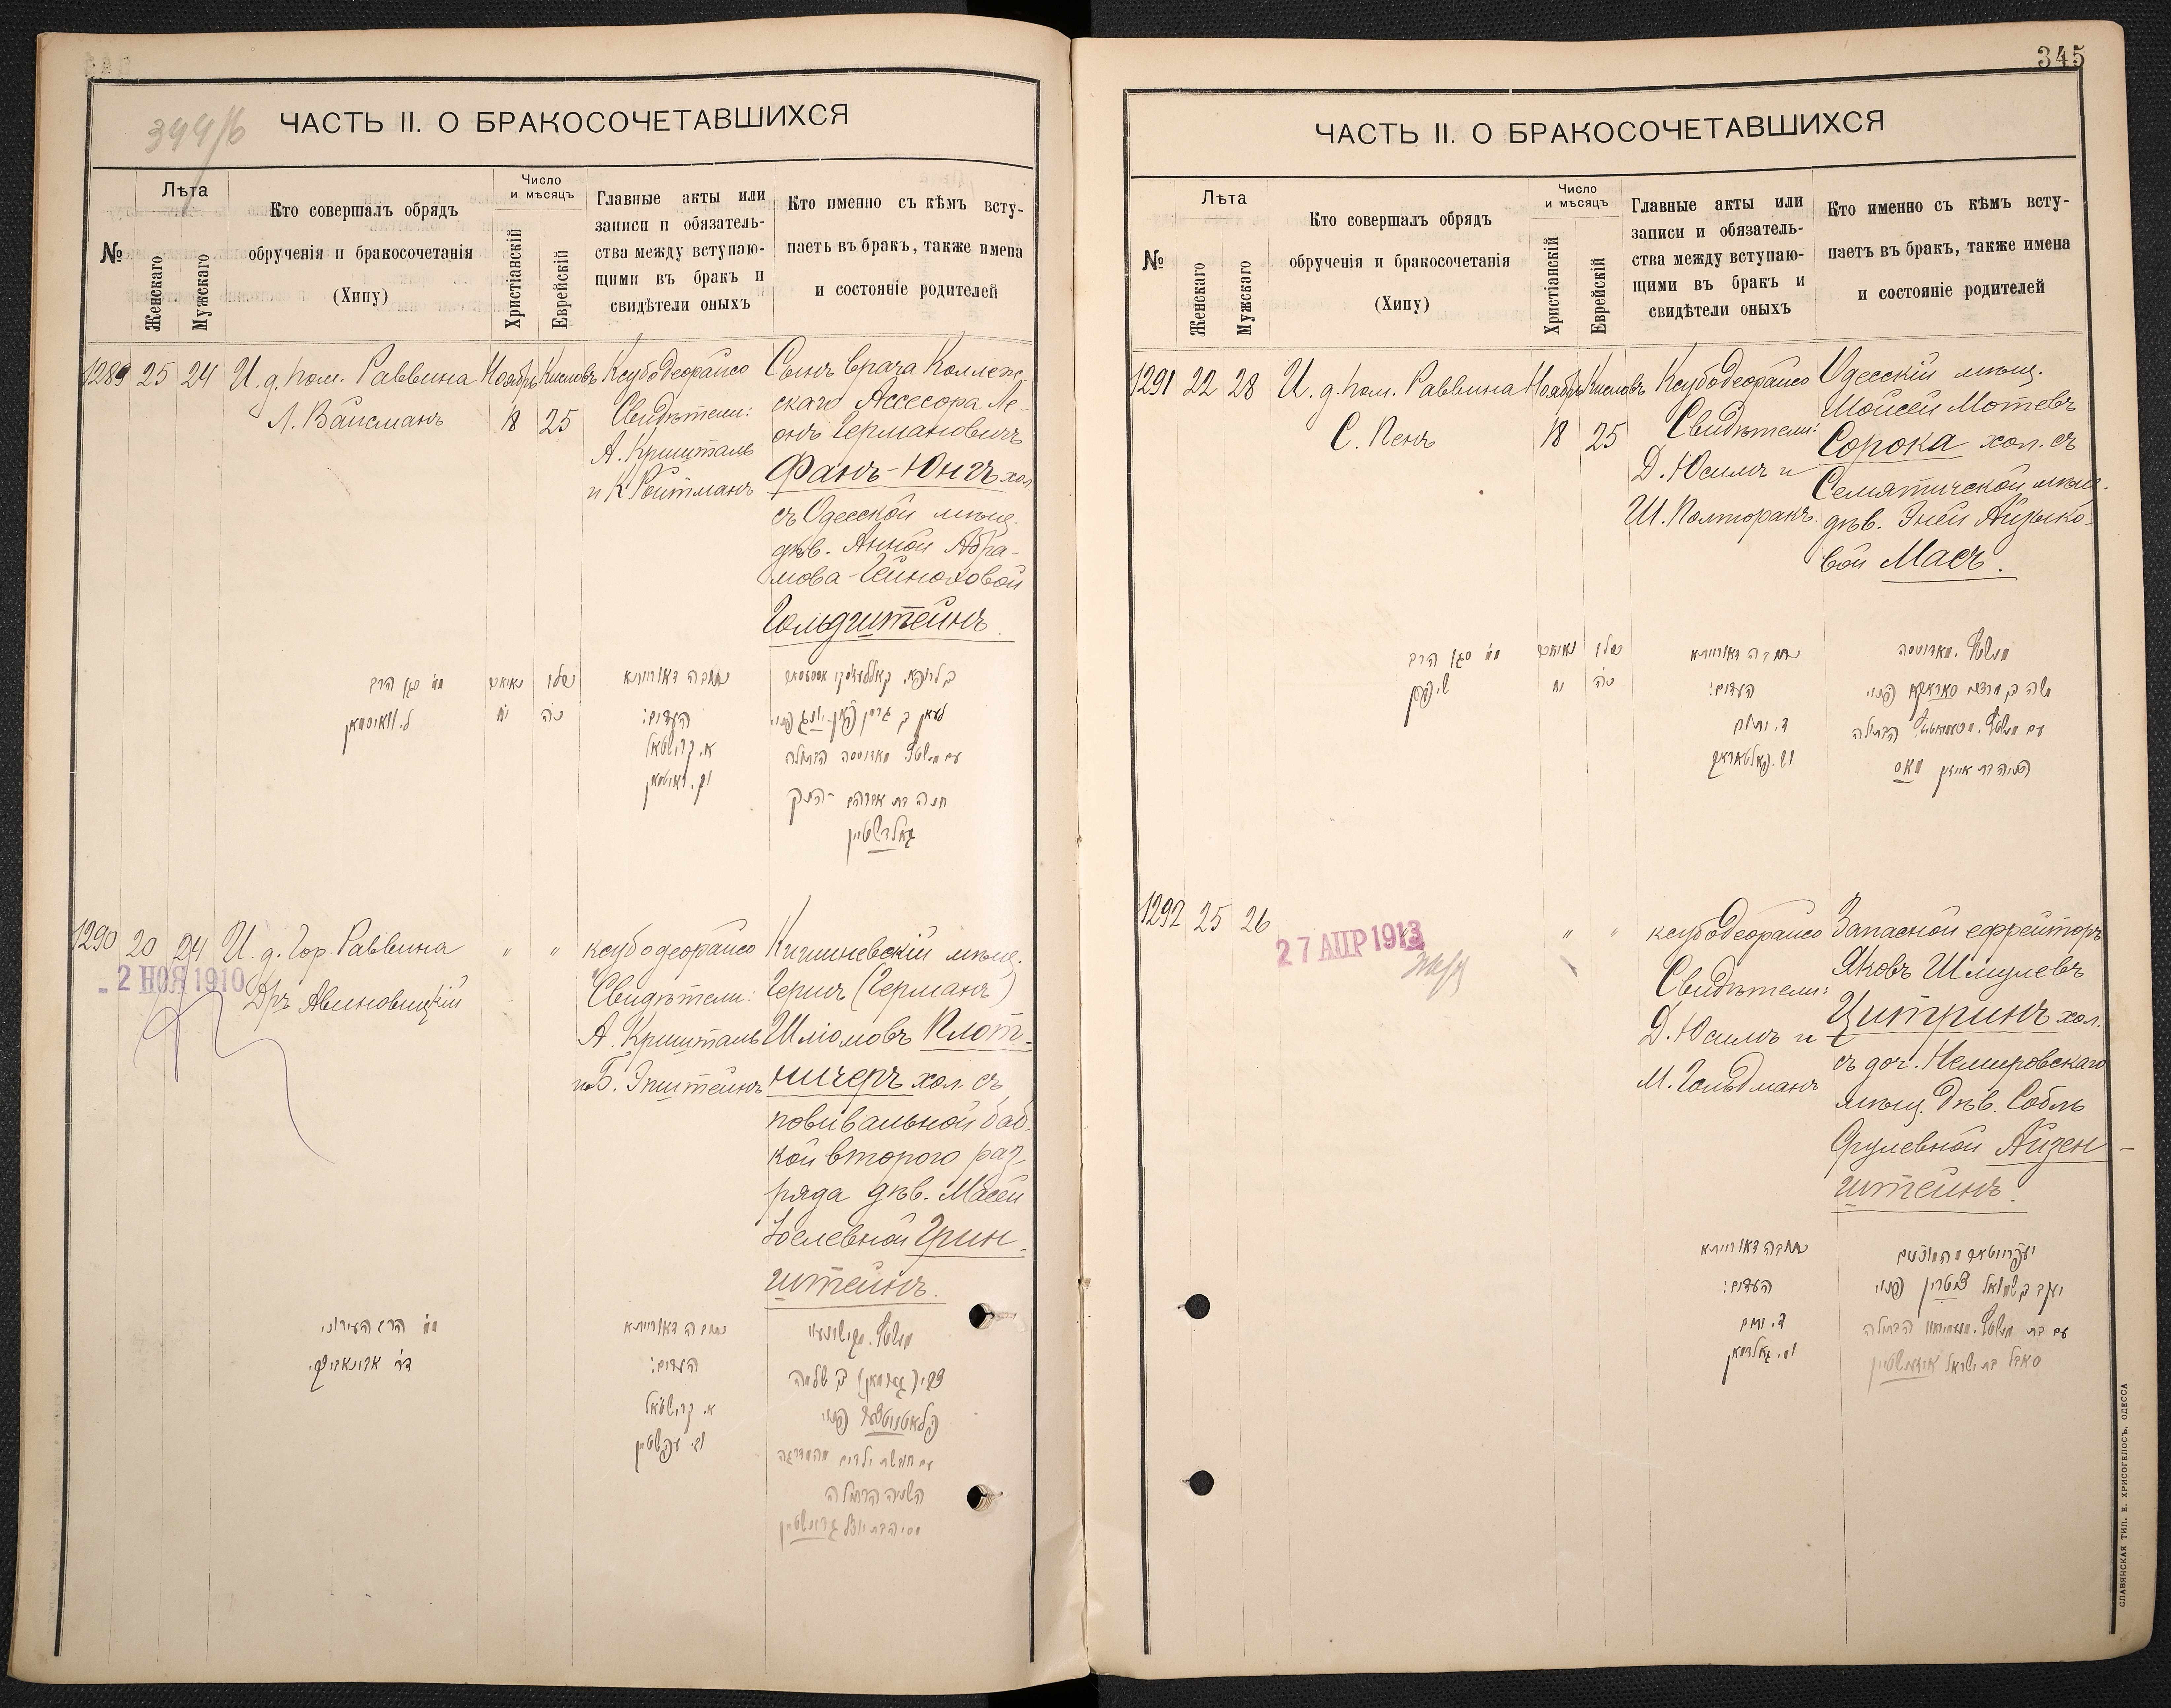 344/б
ЧАСТЬ II. О БРАКОСОЧЕТАВШИХСЯ
№
Лѣта
Женскаго
Мужскаго
Кто совершалъ обрядъ
обрученія и бракосочетанія
(Хипу)
Число
и мѣсяцъ
Христіанскій
Еврейскій
Главные акты или
записи и обязатель-
ства между вступаю-
щими въ бракъ и
свидѣтели оныхъ
Кто именно съ кѣмъ всту-
паетъ въ бракъ, также имена
и состояніе родителей
1289 25 24
И. д. пом. Раввина
Л. Вайсманъ
Ноябрь
18
Кисловъ
25
Ксубодеорайсо
Свидѣтели:
А. Кришталь
и К. Ройтманъ
Сынъ врача Коллеж-
скаго Ассесора Ле-
онъ Германовичъ
Фанъ-Юнгъ хол.
съ Одесской мѣщ.
дѣв. Анной Абра-
мова-Гейноховой
Гольдштейнъ.
כתובה דאורייתא
העדים:
א. קרישטאל
חנה בת אברהם-הניק
גאלדשטיין
1290 20 24
И. д. Гор. Раввина
Дръ Авиновицкій
- 2 НОЯ 1910
" "
ксубодеорайсо
Свидѣтели:
А. Кришталь
и Б. Эпштейнъ
Кишиневскій мѣщ.
Герш (Германъ)
Шліомовъ Плот-
ничеръ хол. съ
повивальной баб-
кой второго раз-
ряда дѣв. Масей
Іослевной Грин-
штейнъ.
הרב העירוני
כתובה דאורייתא
העדים:
א. קרישטאל
וב. עפשטיין
345
ЧАСТЬ II. О БРАКОСОЧЕТАВШИХСЯ
№
Лѣта
Женскаго
Мужскаго
Кто совершалъ обрядъ
обрученія и бракосочетанія
(Хипу)
Число
и мѣсяцъ
Христіанскій
Еврейскій
Главные акты или
записи и обязатель-
ства между вступаю-
щими въ бракъ и
свидѣтели оныхъ
Кто именно съ кѣмъ всту-
паетъ въ бракъ, также имена
и состояніе родителей
1291 22 28
И. д. пом. Раввина
С. Пенъ
Ноябрь
18
Кисловъ
25
Ксубодеорайсо
Свидѣтели:
Д. Юсимъ и
Ш. Полторакъ.
Одесскій мѣщ.
Мойсей Мотевъ
Сорока хол. съ
Семятичской мѣщ.
дѣв. Эней Айзыко-
вой Масъ.
כתובה דאורייתא
העדים:
1292 25 26
27 АПР 1913
" "
ксубодеорайсо
Свидѣтели:
Д. Юсимъ и
М. Гольдманъ
Запасной ефрейторъ
Яковъ Шмулевъ
Цитринъ хол.
съ доч. Немировскаго
мѣщ. дѣв. Собль
Срулевной Айзен-
штейнъ.
כתובה דאורייתא
העדים:
ומ. גאלדמאן
יעקב ב שמואל ציטרין פנוי
סאבל בת ישראל אייזענשטיין
СЛАВЯНСКАЯ ТИП. Е. ХРИСОГЕЛОСЪ, ОДЕССА